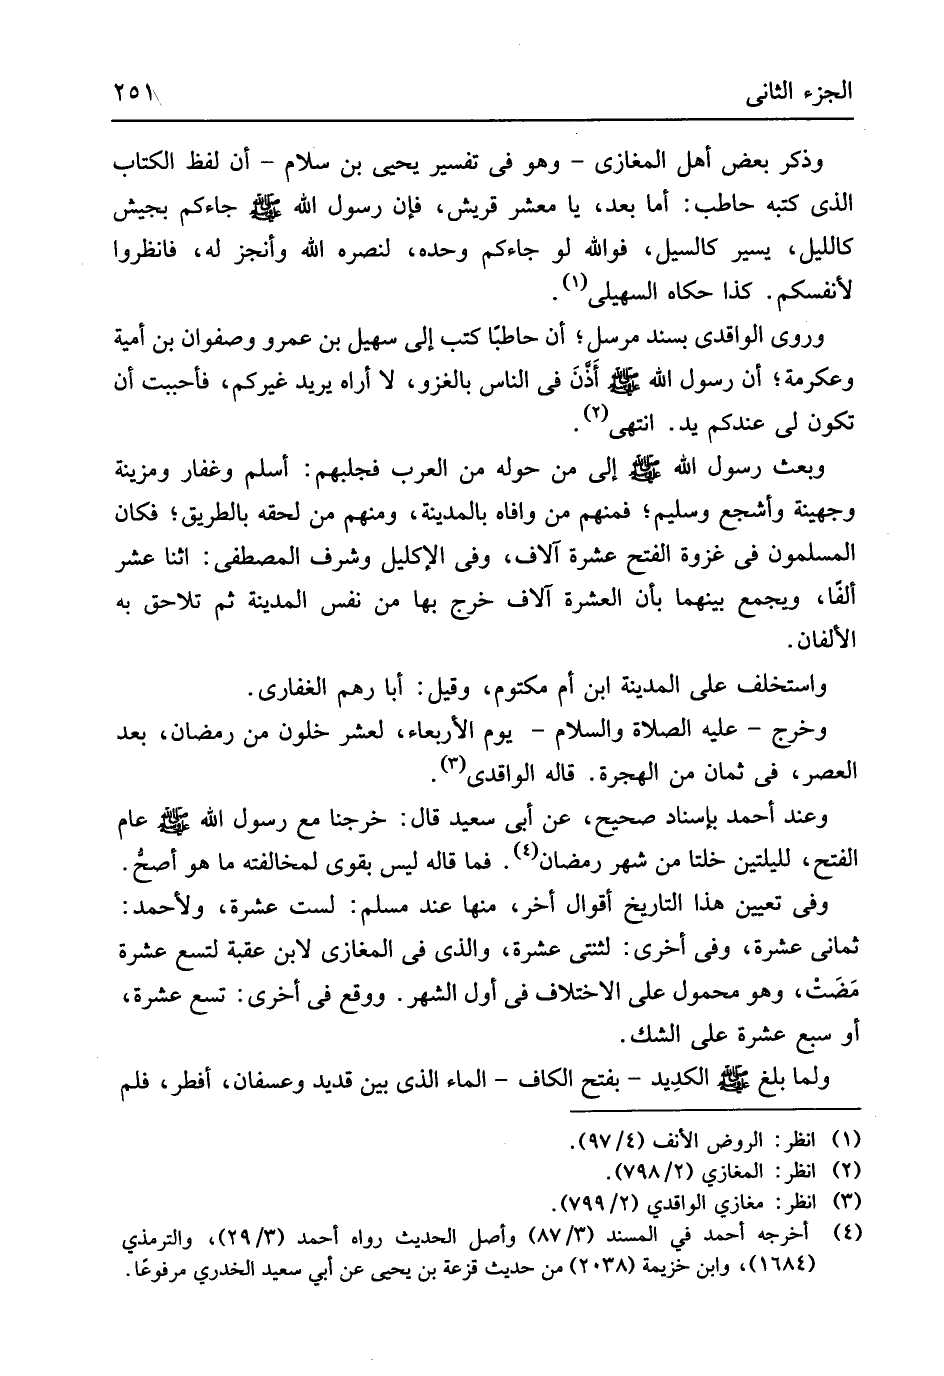 الجزء الثانى ٢٥١
وذكر بعض أهل المغازى - وهو فى تفسير يحيى بن سلام - أن لفظ الكتاب
الذى كتبه حاطب: أما بعد، يا معشر قريش، فإن رسول الله ﷺ جاءكم بجيش
كالليل، يسير كالسيل، فوالله لو جاءكم وحده، لنصره الله وأنجز له، فانظروا
لأنفسكم. كذا حكاه السهيلى(١).
وروى الواقدى بسند مرسل؛ أن حاطبًا كتب إلى سهيل بن عمرو وصفوان بن أمية
وعكرمة؛ أن رسول الله ﷺ أَذَّنَ فى الناس بالغزو، لا أراه يريد غيركم، فأحببت أن
تكون لى عندكم يد. انتهى(٢).
وبعث رسول الله ﷺ إلى من حوله من العرب فجلبهم: أسلم وغفار ومزينة
وجهينة وأشجع وسليم؛ فمنهم من وافاه بالمدينة، ومنهم من لحقه بالطريق؛ فكان
المسلمون فى غزوة الفتح عشرة آلاف، وفى الإكليل وشرف المصطفى: اثنا عشر
ألفًا، ويجمع بينهما بأن العشرة آلاف خرج بها من نفس المدينة ثم تلاحق به
الألفان.
واستخلف على المدينة ابن أم مكتوم، وقيل: أبا رهم الغفارى.
وخرج - عليه الصلاة والسلام - يوم الأربعاء، لعشر خلون من رمضان، بعد
العصر، فى ثمان من الهجرة. قاله الواقدى(٣).
وعند أحمد بإسناد صحيح، عن أبى سعيد قال: خرجنا مع رسول الله ﷺ عام
الفتح، لليلتين خلتا من شهر رمضان(٤). فما قاله ليس بقوى لمخالفته ما هو أصحُّ.
وفى تعيين هذا التاريخ أقوال أخر، منها عند مسلم: لست عشرة، ولأحمد:
ثمانى عشرة، وفى أخرى: لثنتى عشرة، والذى فى المغازى لابن عقبة لتسع عشرة
مَضَتْ، وهو محمول على الاختلاف فى أول الشهر. ووقع فى أخرى: تسع عشرة،
أو سبع عشرة على الشك.
ولما بلغ ﷺ الكَدِيد - بفتح الكاف - الماء الذى بين قديد وعسفان، أفطر، فلم
(١) انظر: الروض الأنف (٩٧/٤).
(٢) انظر: المغازي (٧٩٨/٢).
(٣) انظر: مغازي الواقدي (٧٩٩/٢).
(٤) أخرجه أحمد في المسند (٨٧/٣) وأصل الحديث رواه أحمد (٢٩/٣)، والترمذي
(١٦٨٤)، وابن خزيمة (٢٠٣٨) من حديث قزعة بن يحيى عن أبي سعيد الخدري مرفوعًا.